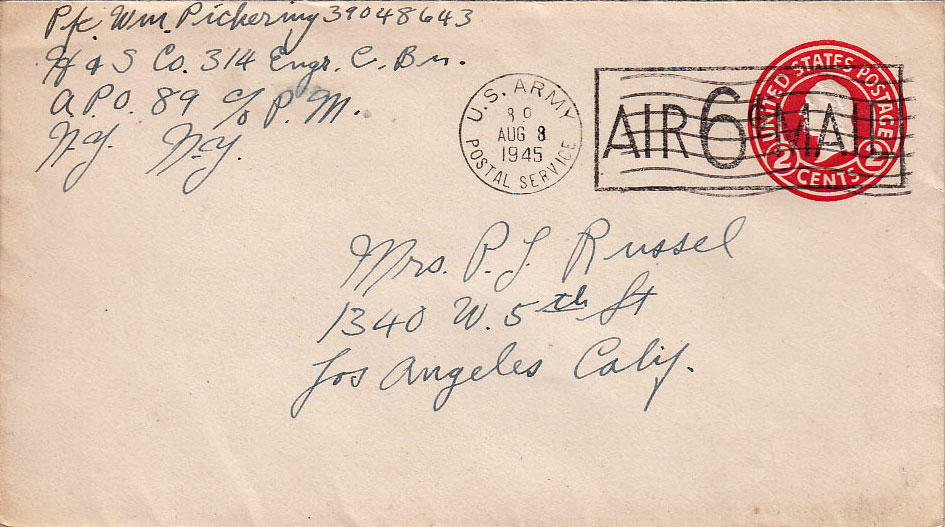 Pfc. Wm. Pickering 39048643
H & S Co. 314 Engr. C. Bn.
A.P.O. 89 c/o P.M.
N.Y. N.Y.
U.S. ARMY
AUG 8
1945
POSTAL SERVICE
AIR 6¢ MAIL
UNITED STATES POSTAGE
2 CENTS 2
Mrs. P. J. Russel
1340 W. 5th St
Los Angeles Calif.